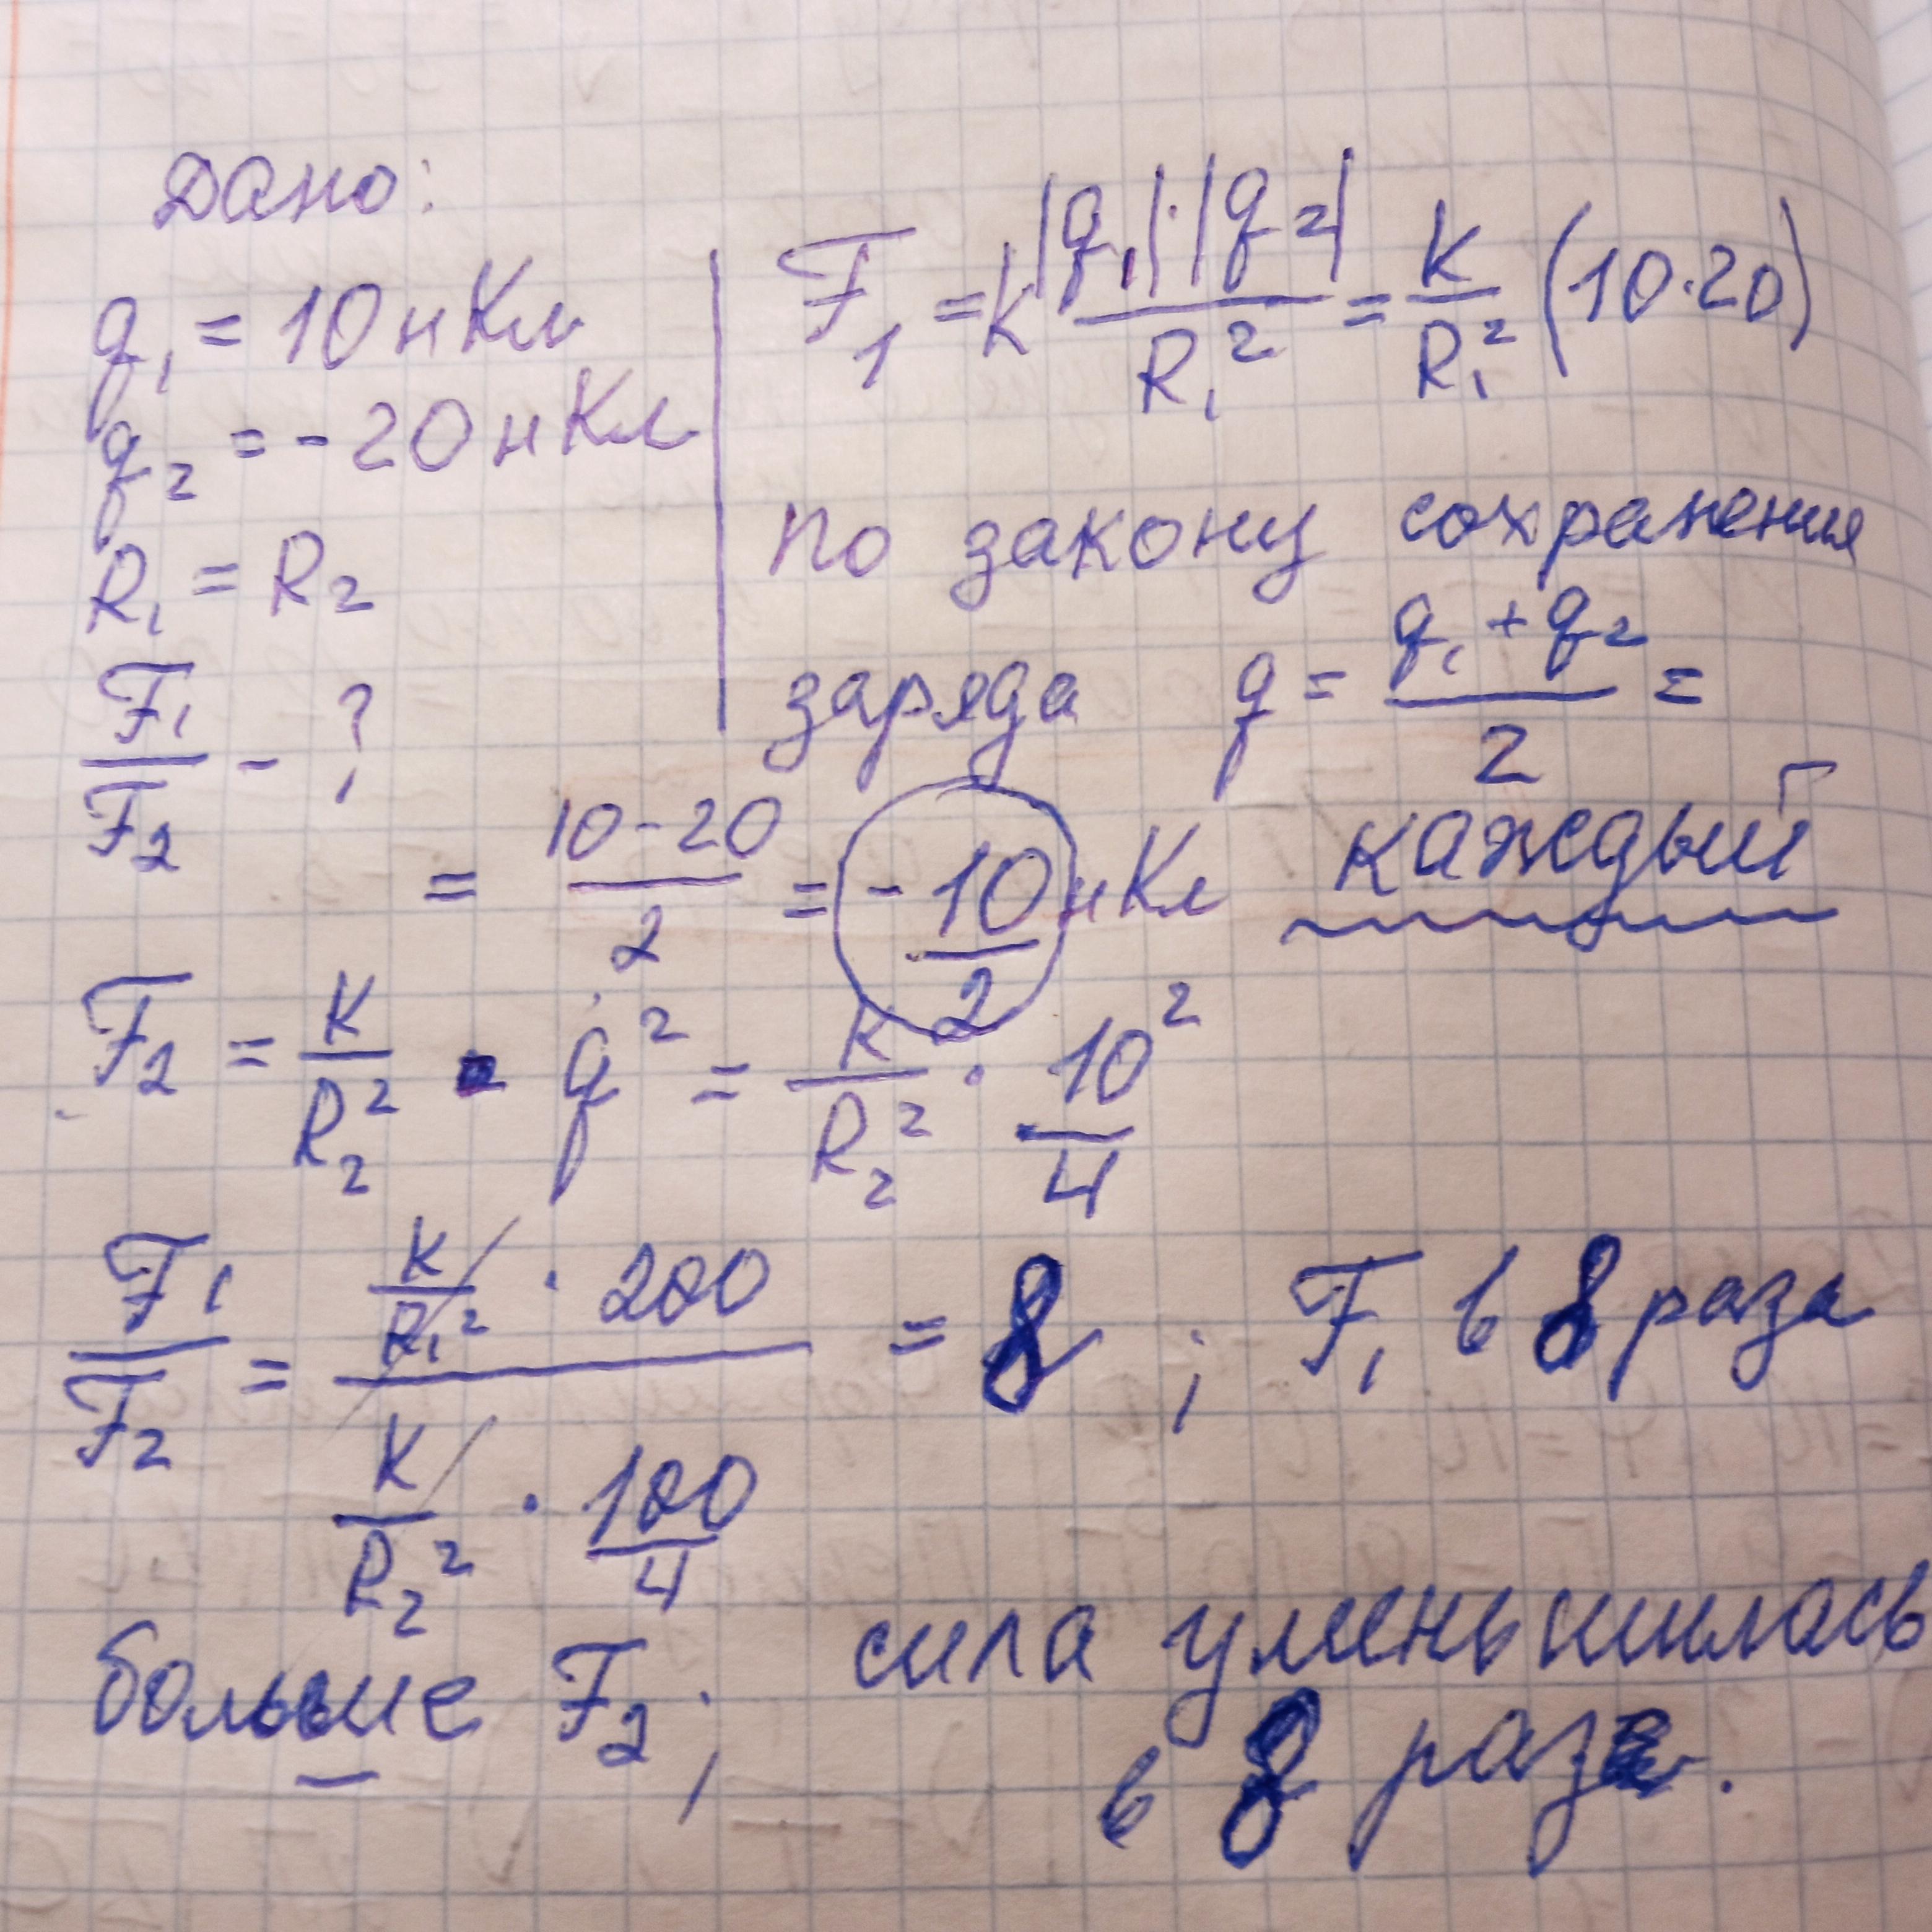 Дано:
q₁ = 10 нКл
q₂ = -20 нКл
R₁ = R₂
F₁/F₂ - ?
F₁ = K |q₁|·|q₂| / R₁² = K/R₁² (10·20)
по закону сохранения
заряда q = (q₁ + q₂)/2 =
= (10-20)/2 = -10/2 нКл каждый
F₂ = K/R₂² · q² = K/R₂² · 10²/4
F₁/F₂ = (K/R₁² · 200)/(K/R₂² · 100/4) = 8 ; F₁ в 8 раза
больше F₂; сила уменьшилась
в 8 раз.